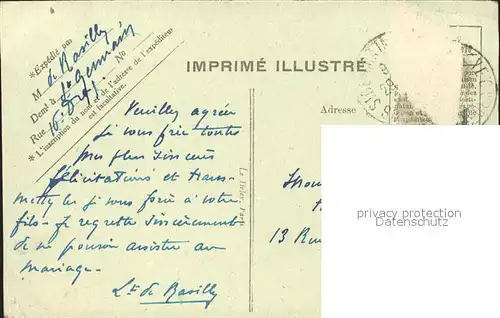 *Expédié par
M de Rasilly
Demt à St Germain
Rue No
* L'inscription du nom et de l'adresse de l'expéditeur
est facultative.
IMPRIMÉ ILLUSTRÉ
Adresse
Veuillez agréer
je vous prie toutes
mes plus sincères
félicitations et trans-
mettez les je vous prie à votre
fils. Je regrette sincèrement
de ne pouvoir assister au
mariage.
Lt de Rasilly
13 Rue
privacy protection
Datenschutz